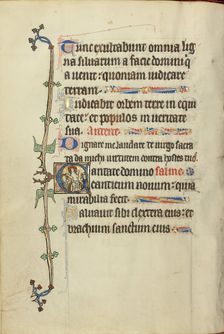 Tunc exultabunt omnia lig
na silvarum a facie domini q
a venit: quoniam iudicare
terram
Iudicabit orbem terre in equi
tate: et populos in veritate
sua. Antene
Dignare me laudare te virgo sacra
ta da michi virtutem contra hostes tuos
Cantate domino
canticum novum: quia
mirabilia fecit
Salvavit sibi dextera eius: et
brachium sanctum eius